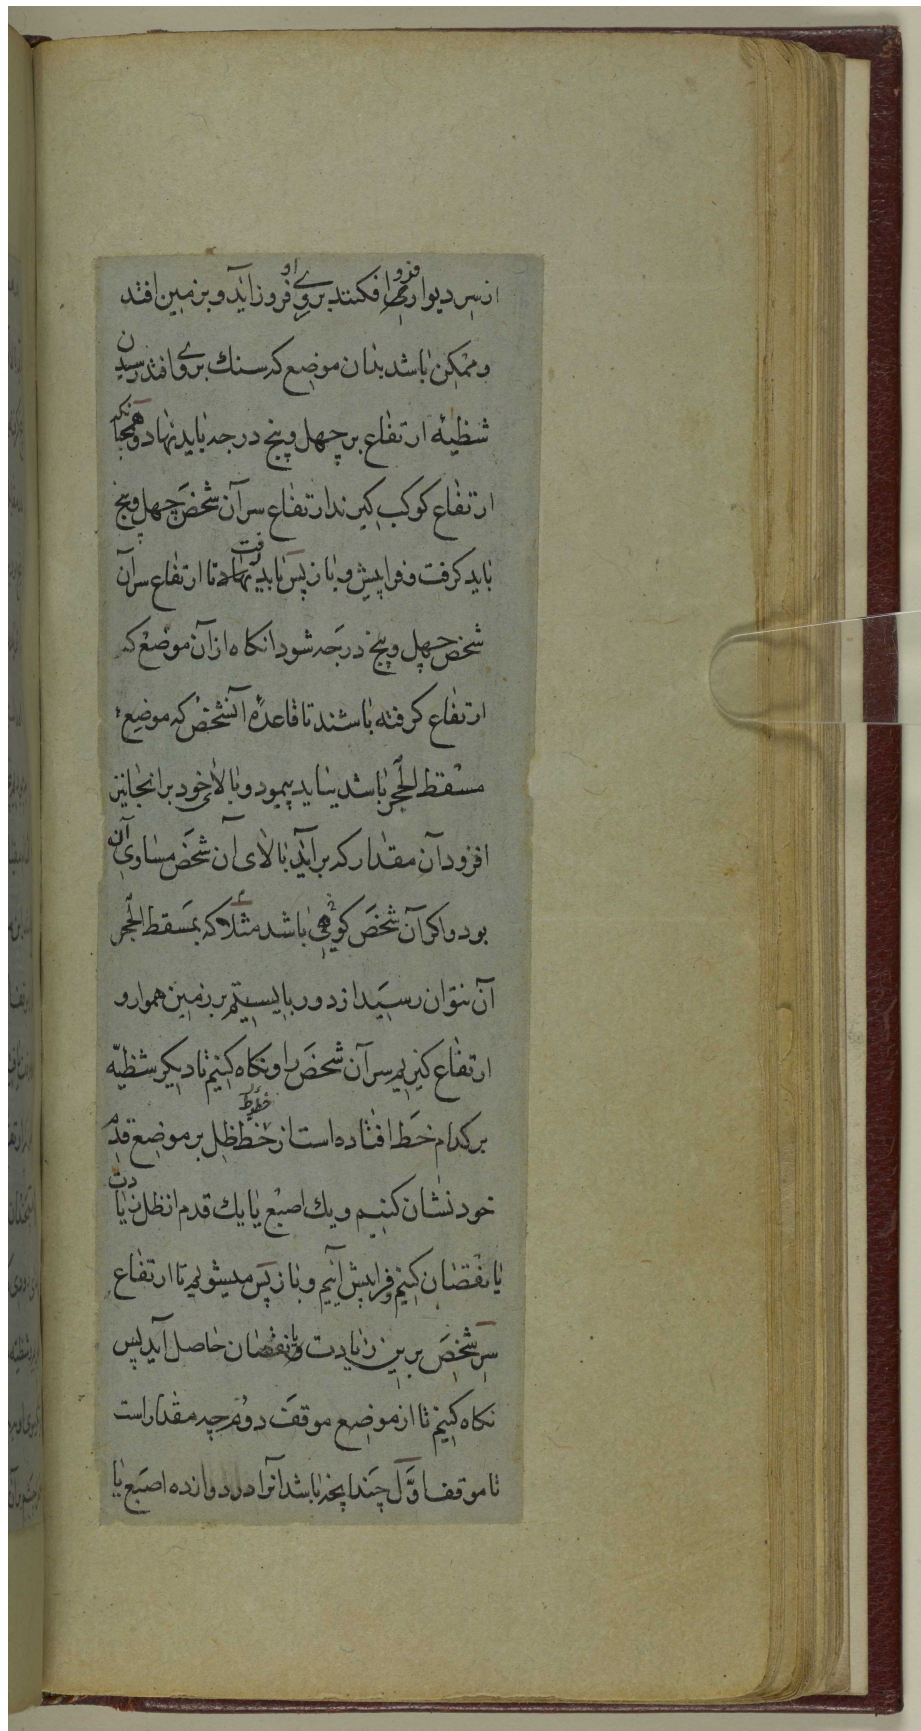 از سر دیوار فرو افکنند بروی او فروز آید و بر زمین افتد
و ممکن باشد بدان موضع که سنك بروی افتد رسیدن
شظیه ارتفاع بر چهل و پنج درجه باید نهاد و همچنانکه
ارتفاع کوکب کیرند ارتفاع سر آن شخص چهل و پنج
باید کرفت و فراپیش و باز پس باید رفت تا ارتفاع سر آن
شخص چهل و پنج درجه شود انکاه از آن موضع که
ارتفاع کرفته باشند تا قاعدهٔ آنشخص که موضع
مسقط الحجر باشد بباید پیمود و بالای خود بر انجا نیز
افزود آن مقدار که بر آید بالای آن شخص مساوی آن
بود و اکر آن شخص کوهی باشد مثلا که بمسقط الحجر
آن نتوان رسید از دور بایستیم بر زمین هموار و
ارتفاع کیریم سر آن شخص را و نکاه کنیم تا دیکر شظیّه
بر کدام خط افتاده است از خطوط ظل بر موضع قدم
خود نشان کنیم و یك اصبع یا یك قدم از ظل زیادت
یا نقصان کنیم و فراپیش آییم و باز پس میشویم تا ارتفاع
سر شخص برین زیادت و یا نقصان حاصل آید پس
نکاه کنیم تا از موضع موقف دوم چه مقدار است
تا موقف اوّل چندانچه باشد آنرا در دوازده اصبع یا